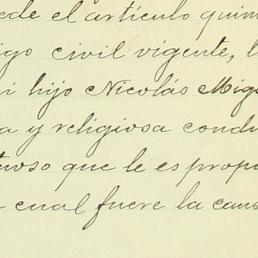 ede el artículo quin
igo civil vigente, l
i hijo Nicolás Mig
a y religiosa condu
tuoso que le es propi
cual fuere la caus